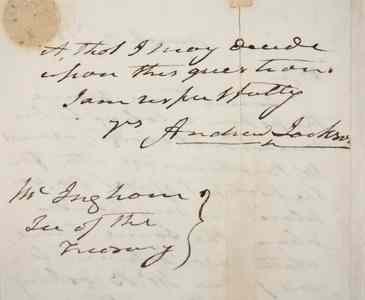 it, that I may decide
upon this question.
I am respectfully
yrs Andrew Jackson
Mr Ingham
Sec of the
Treasury